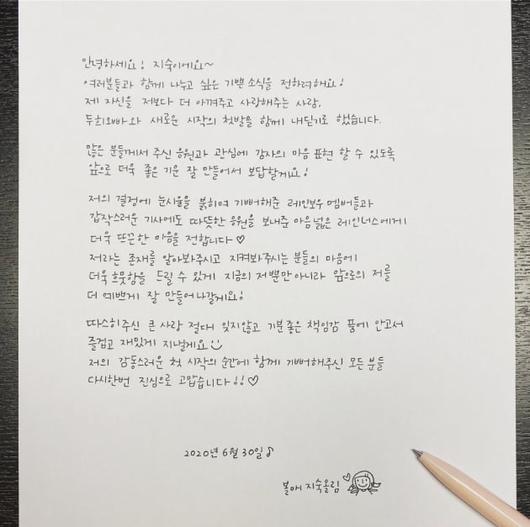 안녕하세요! 지숙이에요~
여러분들과 함께 나누고 싶은 기쁜 소식을 전하려해요!
제 자신을 저보다 더 아껴주고 사랑해주는 사람,
두희오빠와 새로운 시작의 첫발을 함께 내딛기로 했습니다.
많은 분들께서 주신 응원과 관심에 감사의 마음 표현 할 수 있도록
앞으로 더욱 좋은 기운 잘 만들어서 보답할게요!
저의 결정에 눈시울을 붉히며 기뻐해준 레인보우 멤버들과
갑작스러운 기사에도 따뜻한 응원을 보내준 마음넓은 레인너스에게
더욱 뜨끈한 마음을 전합니다♡
저라는 존재를 알아봐주시고 지켜봐주시는 분들의 마음에
더욱 흐뭇함을 드릴 수 있게 지금의 저뿐만아니라 앞으로의 저를
더 예쁘게 잘 만들어나갈게요!
따스히주신 큰 사랑 절대 잊지않고 기분좋은 책임감 품에 안고서
즐겁고 재밌게 지낼게요
저의 감동스러운 첫 시작의 순간에 함께 기뻐해주신 모든 분들
다시한번 진심으로 고맙습니다!!♡
2020년 6월 30일♪
지숙올림